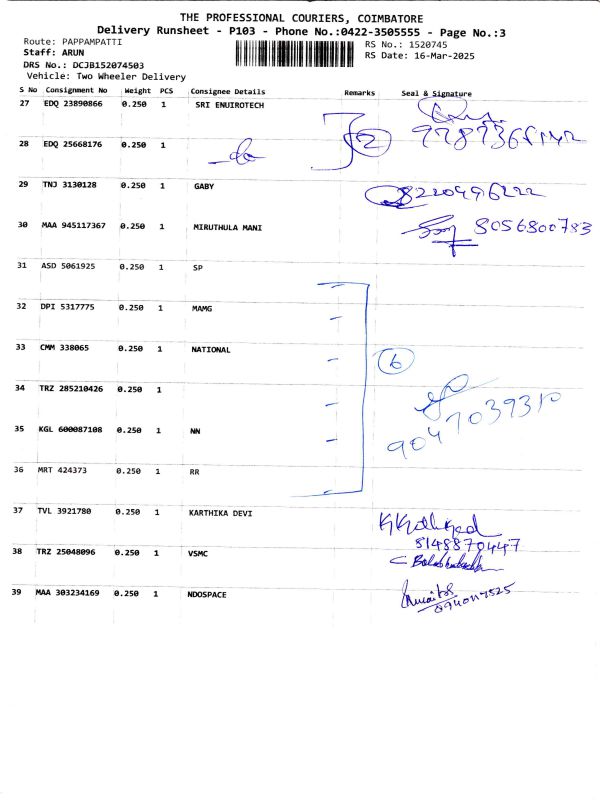 THE PROFESSIONAL COURIERS, COIMBATORE
Delivery Runsheet - P103 - Phone No.:0422-3505555 - Page No.:3
Route: PAPPAMPATTI
RS No.: 1520745
Staff: ARUN
RS Date: 16-Mar-2025
DRS No.: DCJB152074503
Vehicle: Two Wheeler Delivery
S No Consignment No Weight PCS Consignee Details Remarks Seal & Signature
27 EDQ 23890866 0.250 1 SRI ENUIROTECH
28 EDQ 25668176 0.250 1
2
29 TNJ 3130128 0.250 1 GABY
8220496222
30 MAA 945117367 0.250 1 MIRUTHULA MANI 8056800783
31 ASD 5061925 0.250 1 SP
32 DPI 5317775 0.250 1 MAMG
33 CMM 338065 0.250 1 NATIONAL
6
34 TRZ 285210426 0.250 1
9047039310
35 KGL 600087108 0.250 1 NN
36 MRT 424373 0.250 1 RR
37 TVL 3921780 0.250 1 KARTHIKA DEVI
8148870447
38 TRZ 25048096 0.250 1 VSMC
39 MAA 303234169 0.250 1 NDOSPACE